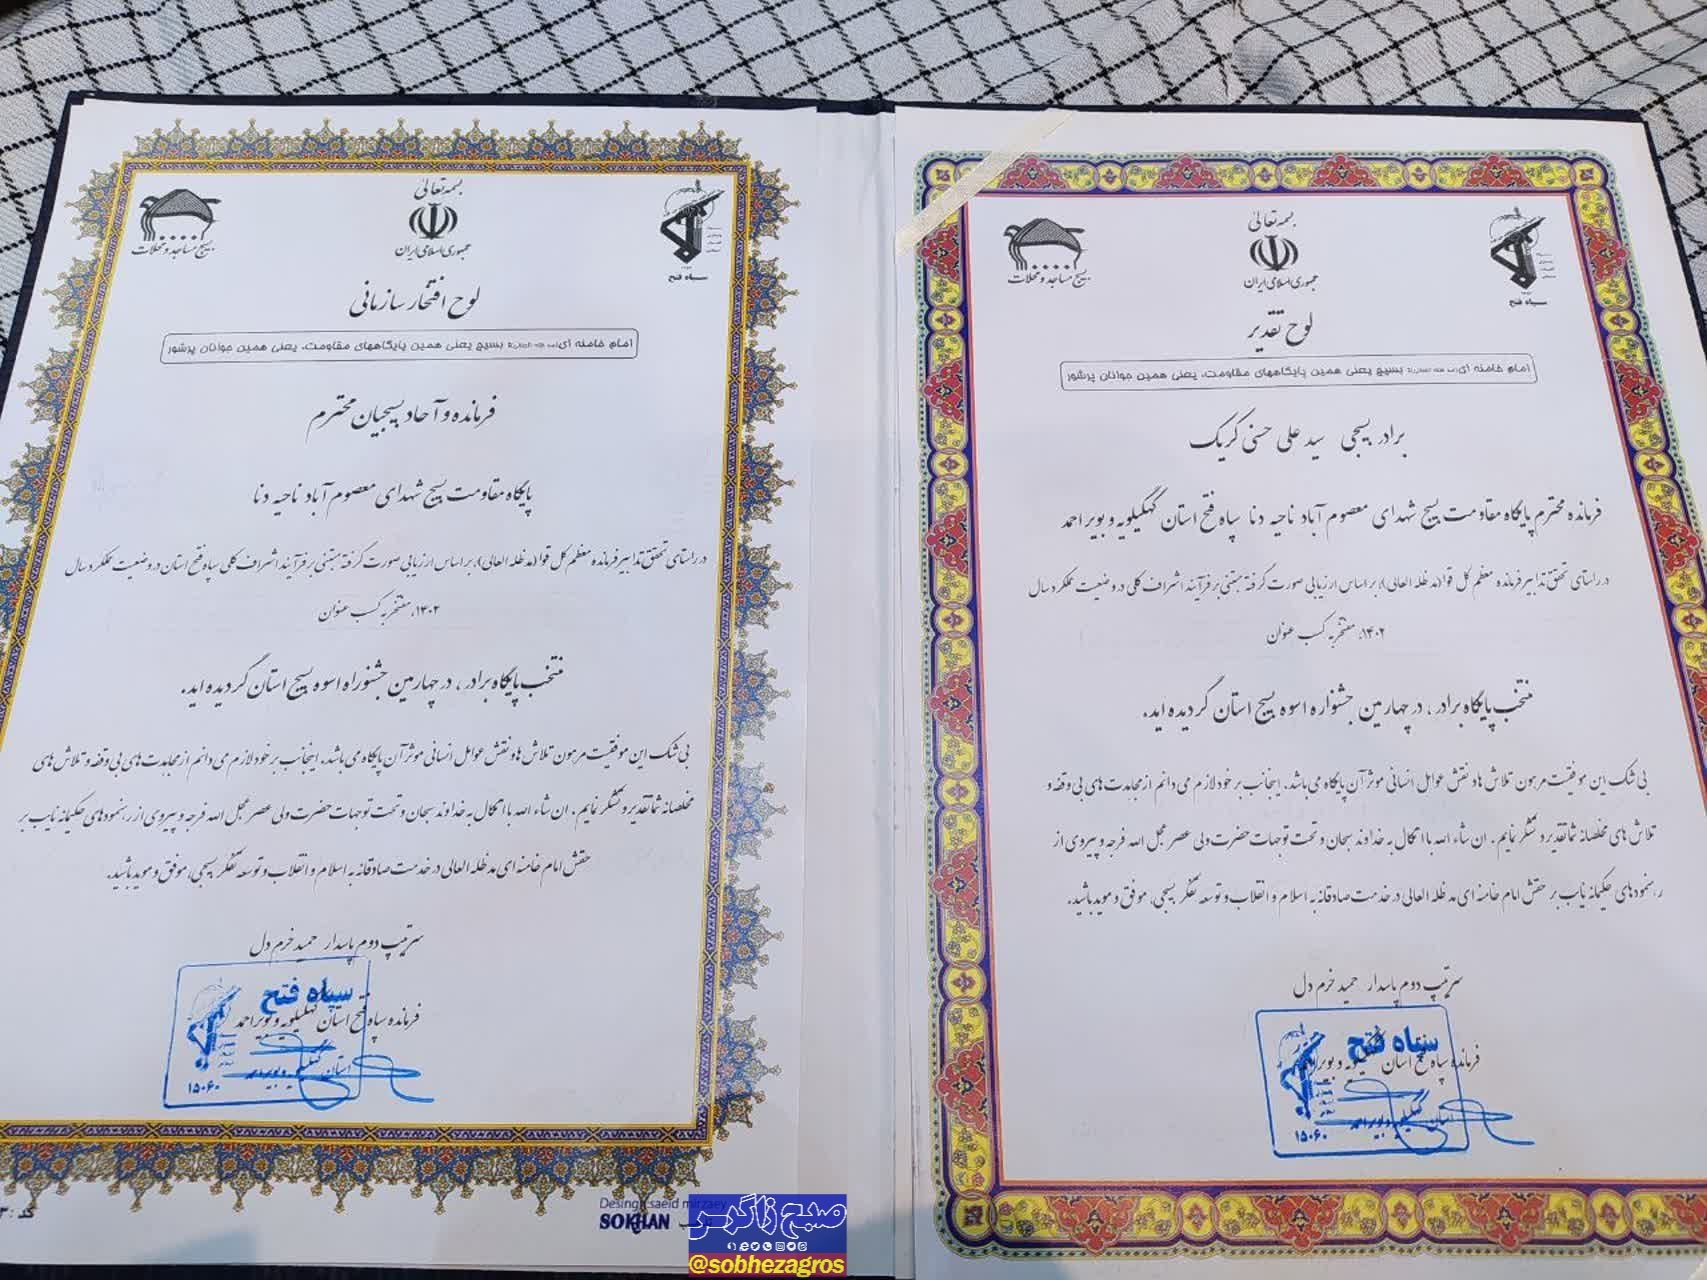 بسمه تعالی
جمهوری اسلامی ایران
بسیج مساجد و محلات
سپاه فتح
لوح تقدیر
امام خامنه ای بسیج یعنی همین پایگاههای مقاومت، یعنی همین جوانان پرشور
برادر بسیجی سید علی حسنی کریک
فرمانده محترم پایگاه مقاومت بسیج شهدای معصوم آباد ناحیه دنا سپاه فتح استان کهگیلویه و بویراحمد
در راستای تحقق تدابیر فرمانده معظم کل قوا (مد ظله العالی)، بر اساس ارزیابی صورت گرفته مبتنی بر فرآیند اشراف کلی در وضعیت عملکرد سال
۱۴۰۲، مفتخر به کسب عنوان
منتخب پایگاه برادر، در چهارمین جشنواره اسوه بسیج استان گردیده اید.
بی شک این موفقیت مرهون تلاش ها و نقش عوامل انسانی موثر آن پایگاه می باشد. اینجانب بر خود لازم می دانم از مجاهدت های بی وقفه و
تلاش های مخلصانه شما تقدیر و تشکر نمایم. ان شاء الله با اتکال به خداوند سبحان و تحت توجهات حضرت ولی عصر عجل الله فرجه و پیروی از
رهنمودهای حکیمانه نایب بر حقش امام خامنه ای مد ظله العالی در خدمت صادقانه به اسلام و انقلاب و توسعه تفکر بسیجی، موفق و موید باشید.
سرتیپ دوم پاسدار حمید خرم دل
فرمانده سپاه فتح استان کهگیلویه و بویراحمد
سپاه فتح
استان کهگیلویه و بویراحمد
۱۵۰۶۰
بسمه تعالی
جمهوری اسلامی ایران
بسیج مساجد و محلات
سپاه فتح
لوح افتخار سازمانی
امام خامنه ای بسیج یعنی همین پایگاههای مقاومت، یعنی همین جوانان پرشور
فرمانده و آحاد بسیجیان محترم
پایگاه مقاومت بسیج شهدای معصوم آباد ناحیه دنا
در راستای تحقق تدابیر فرمانده معظم کل قوا (مد ظله العالی)، بر اساس ارزیابی صورت گرفته مبتنی بر فرآیند اشراف کلی سپاه فتح استان در وضعیت عملکرد سال
۱۴۰۲، مفتخر به کسب عنوان
منتخب پایگاه برادر، در چهارمین جشنوراه اسوه بسیج استان گردیده اید.
بی شک این موفقیت مرهون تلاش ها و نقش عوامل انسانی موثر آن پایگاه می باشد. اینجانب بر خود لازم می دانم از مجاهدت های بی وقفه و تلاش های
مخلصانه شما تقدیر و تشکر نمایم. ان شاء الله با اتکال به خداوند سبحان و تحت توجهات حضرت ولی عصر عجل الله فرجه و پیروی از رهنمودهای حکیمانه نایب بر
حقش امام خامنه ای مد ظله العالی در خدمت صادقانه به اسلام و انقلاب و توسعه تفکر بسیجی، موفق و موید باشید.
سرتیپ دوم پاسدار حمید خرم دل
فرمانده سپاه فتح استان کهگیلویه و بویراحمد
سپاه فتح
استان کهگیلویه و بویراحمد
۱۵۰۶۰
saeid mirzaey
SOKHAN
کد :
صبح زاگرس
@sobhezagros